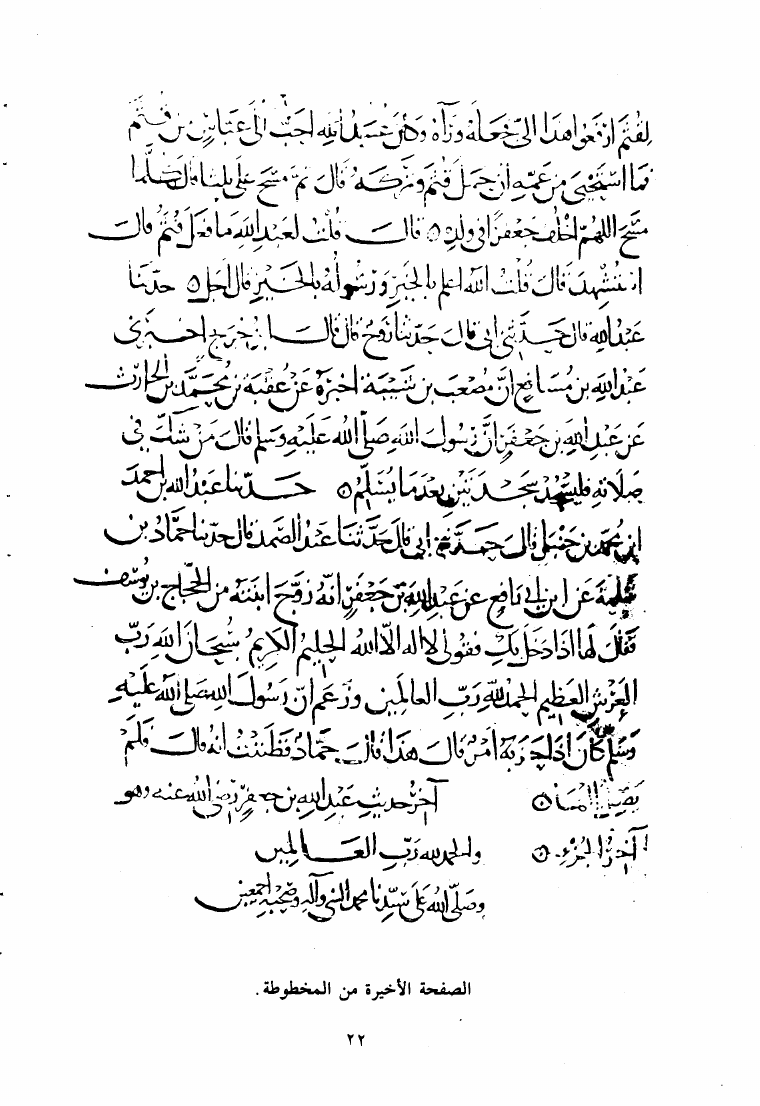 لقثم ارفعوا هذا الى فجعله وراه وكان عبيد الله احب الى عباس من قثم
فما استحيى من عمه ان حمل قثم وتركه قال ثم مسح على راسي ثلثا قال كلما
مسح اللهم اخلف جعفرا في ولده قال قلت لعبد الله ما فعل قثم قال
استشهد قال قلت الله اعلم بالخير ورسوله بالخير قال اجل حدثنا
عبد الله قال حدثني ابي قال حدثنا روح قال قال ابن جريج اخبرني
عبد الله بن مسافع ان مصعب بن شيبة اخبره عن عقبة بن محمد بن الحارث
عن عبد الله بن جعفر ان رسول الله صلى الله عليه وسلم قال من شك في
صلاته فليسجد سجدتين بعد ما يسلم حدثنا عبد الله بن احمد
ابن محمد بن حنبل قال حدثني ابي قال حدثنا عبد الصمد قال حدثنا حماد بن
سلمة عن ابن ابي رافع عن عبد الله بن جعفر انه زوج ابنته من الحجاج بن يوسف
فقال لها اذا دخل بك فقولي لا اله الا الله الحليم الكريم سبحان الله رب
العرش العظيم الحمد لله رب العالمين وزعم ان رسول الله صلى الله عليه
وسلم كان اذا حزبه امر قال هذا قال حماد فظننت انه قال فلم
يصل اليها آخر حديث عبد الله بن جعفر رضي الله عنه وهو
آخر الجزء والحمد لله رب العالمين
وصلى الله على سيدنا محمد النبي وآله وصحبه اجمعين
الصفحة الأخيرة من المخطوطة .
٢٢